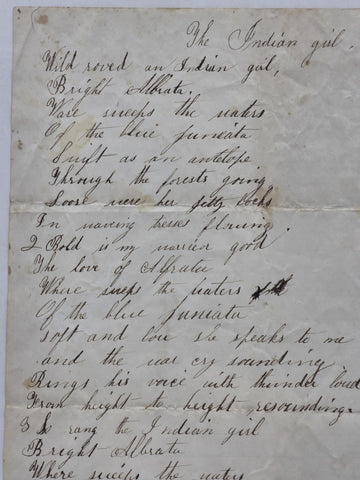 The Indian girl,
Wild roved an Indian girl,
Bright Albrata.
Ware sweeps the waters
Of the blue Juneata
Swift as an antelope
Through the forests going
Loose were her jetty locks
In waveing tresses flowing.
2 Bold is my warried good
The love of Alfrata
Where sweps the waters
Of the blue Juniata
soft and low she speaks to me
and the war cry sounding
Rings his voice with thunder loud
From height to height resounding.
3 So sang the Indian girl
Bright Albrata
Where sweeps the waters